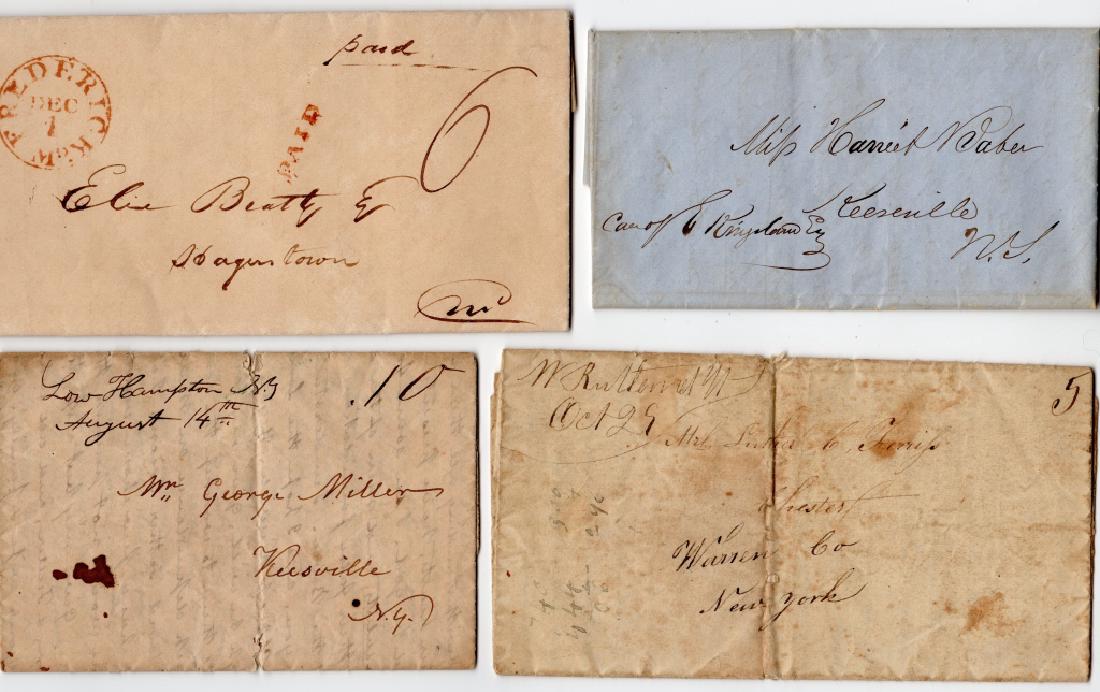 paid
FREDERICK Md.
DEC
7
PAID
6
Elie Beatty Eq
Hagerstown
Md
Miss Harriet Waber
Keeseville
Care of E Kingsland Eq
N.Y.
Low Hampton N.Y
August 14th
.10
Mr. George Miller
Keesville
N.Y.
W Rutland Vt
Oct 29
5
Mr. Luther C.
Chester
Warren Co
New York